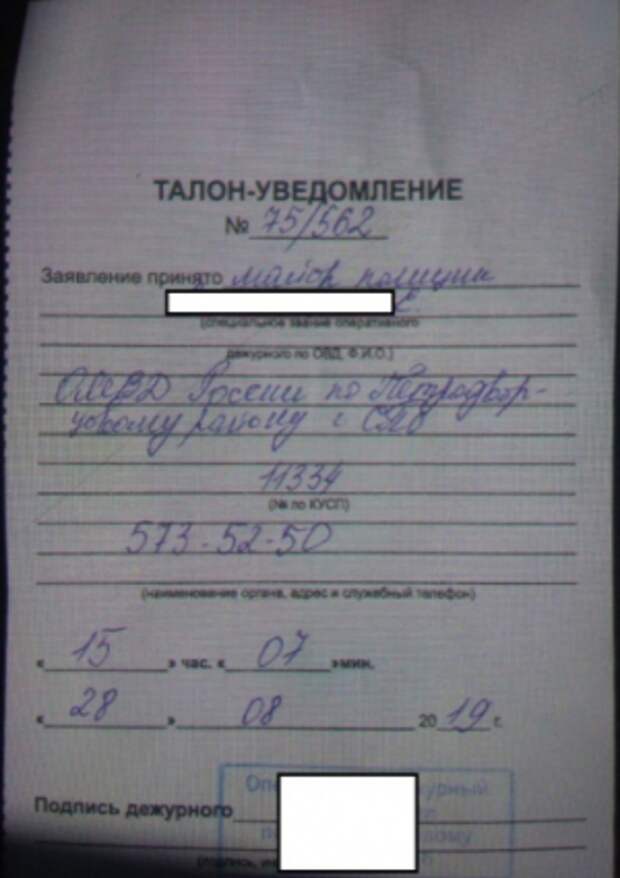 ТАЛОН-УВЕДОМЛЕНИЕ
№ 75/562
Заявление принято майор полиции
(специальное звание оперативного
дежурного по ОВД, Ф.И.О.)
ОМВД России по Петродвор-
цовому району г СПб
11334
(№ по КУСП)
573-52-50
(наименование органа, адрес и служебный телефон)
« 15 » час. « 07 » мин.
« 28 » 08 2019 г.
Подпись дежурного
(подпись,